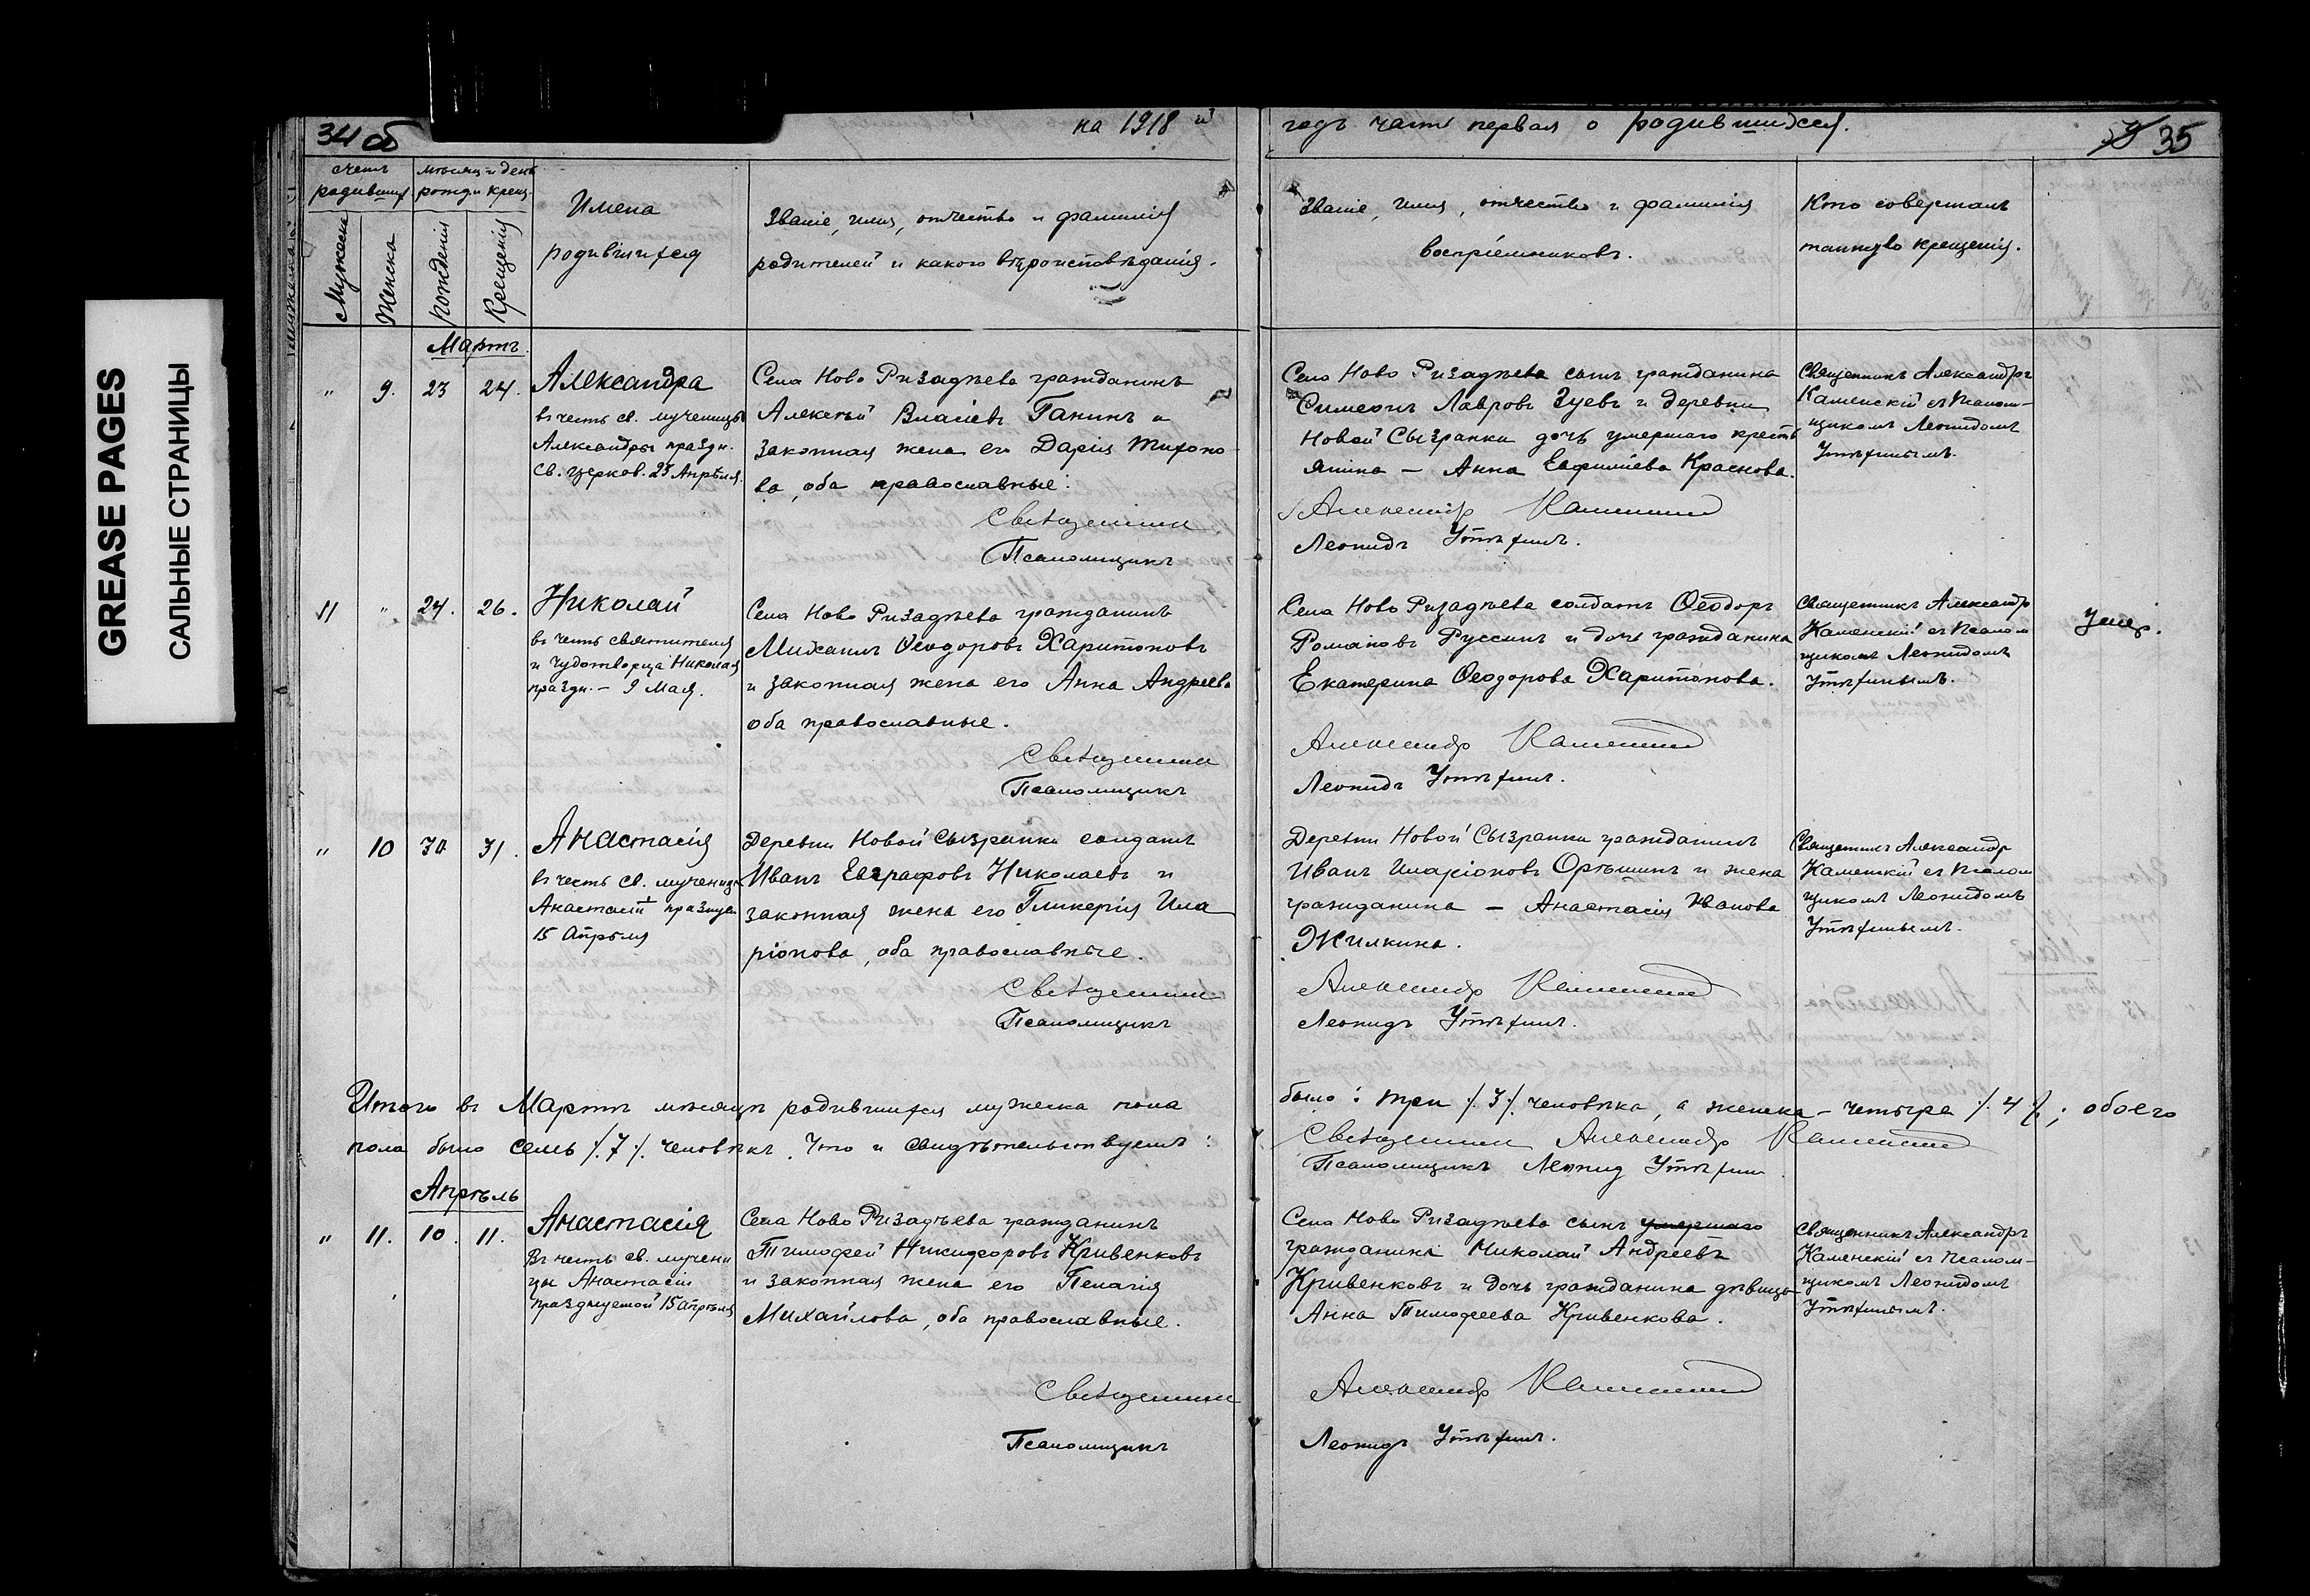 GREASE PAGES
САЛЬНЫЕ СТРАНИЦЫ
34 об
на 1918 й
годъ часть первая о родившихся.
35
счетъ родившихся
мѣсяц и день рожд. и крещ.
Мужеска
Женска
рождения
Крещенія
Имена
родившихся
Званіе, имя, отчество и фамилія
родителей и какого вѣроисповѣданія.
Званіе, имя, отчество и фамилія
воспріемниковъ.
Кто совершалъ
таинство крещенія.
Мартъ
" 9. 23 24.
Александра
въ честь св. мученицы
Александры праздн.
св. церков. 23 Апрѣля.
Села Ново Ризадѣева гражданинъ
Алексѣй Власіевъ Ганинъ и
законная жена его Дарія Тихоно
ва, оба православные.
Священникъ
Псаломщикъ
Села Ново Ризадѣева сынъ гражданина
Симеонъ Лавровъ Зуевъ и деревни
Новой Сызранки дочь умершаго кресть
янина – Анна Евфиміева Краснова.
Александръ Каменскій
Леонидъ Утѣхинъ.
Священникъ Александръ
Каменскій съ псалом-
щикомъ Леонидомъ
Утѣхинымъ.
11 " 24. 26.
Николай
въ честь святителя
и чудотворца Николая
праздн. – 9 Мая.
Села Ново Ризадѣева гражданинъ
Михаилъ Ѳеодоровъ Харитоновъ
и законная жена его Анна Андреева
оба православные.
Священникъ
Псаломщикъ
Села Ново Ризадѣева солдатъ Ѳеодоръ
Романовъ Руссинъ и дочь гражданина
Екатерина Ѳеодорова Харитонова.
Александръ Каменскій
Леонидъ Утѣхинъ.
Священникъ Александръ
Каменскій съ псалом
щикомъ Леонидомъ
Утѣхинымъ.
Умер.
" 10 30 31.
Анастасія
въ честь св. мученицы
Анастасіи празнуем
15 Апрѣля
Деревни Новой Сызранки солдатъ
Иванъ Евграфовъ Николаевъ и
законная жена его Гликерія Ила
ріонова, оба православные.
Священникъ
Псаломщикъ
Деревни Новой Сызранки гражданинъ
Иванъ Иларіоновъ Орѣшинъ и жена
гражданина – Анастасія Иванова
Жилкина.
Александръ Каменскій
Леонидъ Утѣхинъ.
Священникъ Александр
Каменскій съ псалом
щикомъ Леонидомъ
Утѣхинымъ.
Итого въ Мартѣ мѣсяцѣ родившихся мужеска пола
было: три /.3/. человѣка, а женска – четыре /.4/.; обоего
пола было семь /.7/. человѣкъ. Что и свидѣтельствуемъ:
Священникъ Александръ Каменскій
Псаломщикъ Леонид Утѣхин.
Апрѣль
" 11. 10. 11.
Анастасія
Въ честь св. мучени
цы Анастасіи
празднуемой 15 Апрѣля
Села Ново Ризадѣева гражданинъ
Тимофей Никифоровъ Кривенковъ
и законная жена его Пелагія
Михайлова, оба православные.
Священникъ
Псаломщикъ
Села Ново Ризадѣева сынъ умершаго
гражданина Николай Андреевъ
Кривенковъ и дочь гражданина дѣвица
Анна Тимофеева Кривенкова.
Александръ Каменскій
Леонидъ Утѣхинъ.
Священникъ Александръ
Каменскій съ псалом-
щикомъ Леонидомъ
Утѣхинымъ.